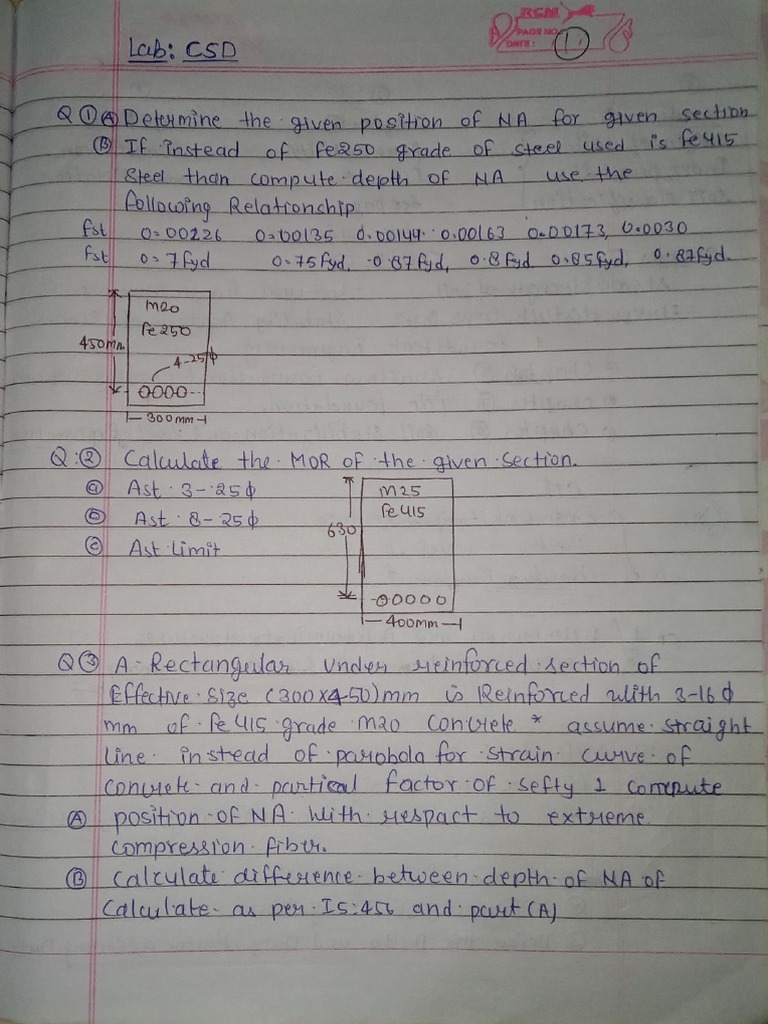 RCM
PAGE NO.:
DATE:
1
Lab: CSD
Q ① Ⓐ Determine the given position of NA for given section
Ⓑ If instead of fe250 grade of steel used is fe415
steel than compute depth of NA use the
following Relationship
fst 0.00226 0.00135 0.00144 0.00163 0.00173, 0.0030
fst 0.7fyd 0.75fyd, 0.87fyd, 0.8fyd 0.85fyd, 0.87fyd.
M20
fe250
450mm.
4-25ϕ
300mm
Q.② Calculate the MOR of the given section.
ⓐ Ast 3-25ϕ
ⓑ Ast 8-25ϕ
ⓒ Ast limit
M25
fe415
630
400mm
Q③ A Rectangular under reinforced section of
Effective size (300x450)mm is Reinforced with 3-16ϕ
mm of fe415 grade M20 concrete * assume straight
line instead of parobola for strain curve of
concrete and partical factor of sefty 1 compute
Ⓐ position of NA with respact to extreme
compression fiber.
Ⓑ calculate difference between depth of NA of
calculate as per IS:456 and part (A)